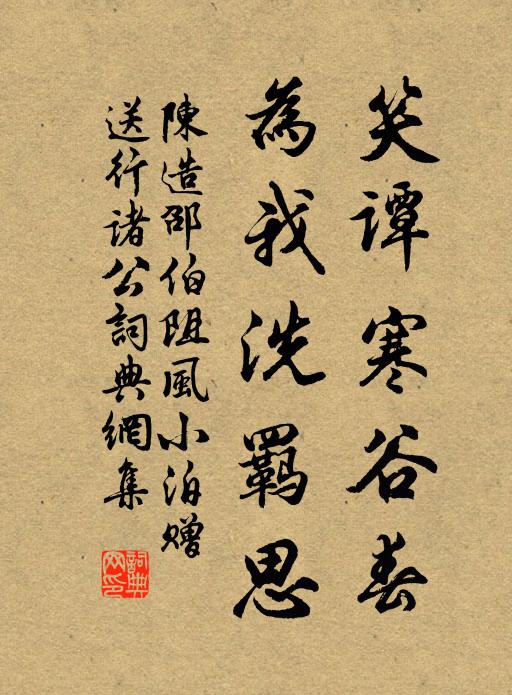 笑譚寒谷春
為我洗羈思
陳造邵伯阻風小泊贈
送行諸公詞典網集
詞典網印